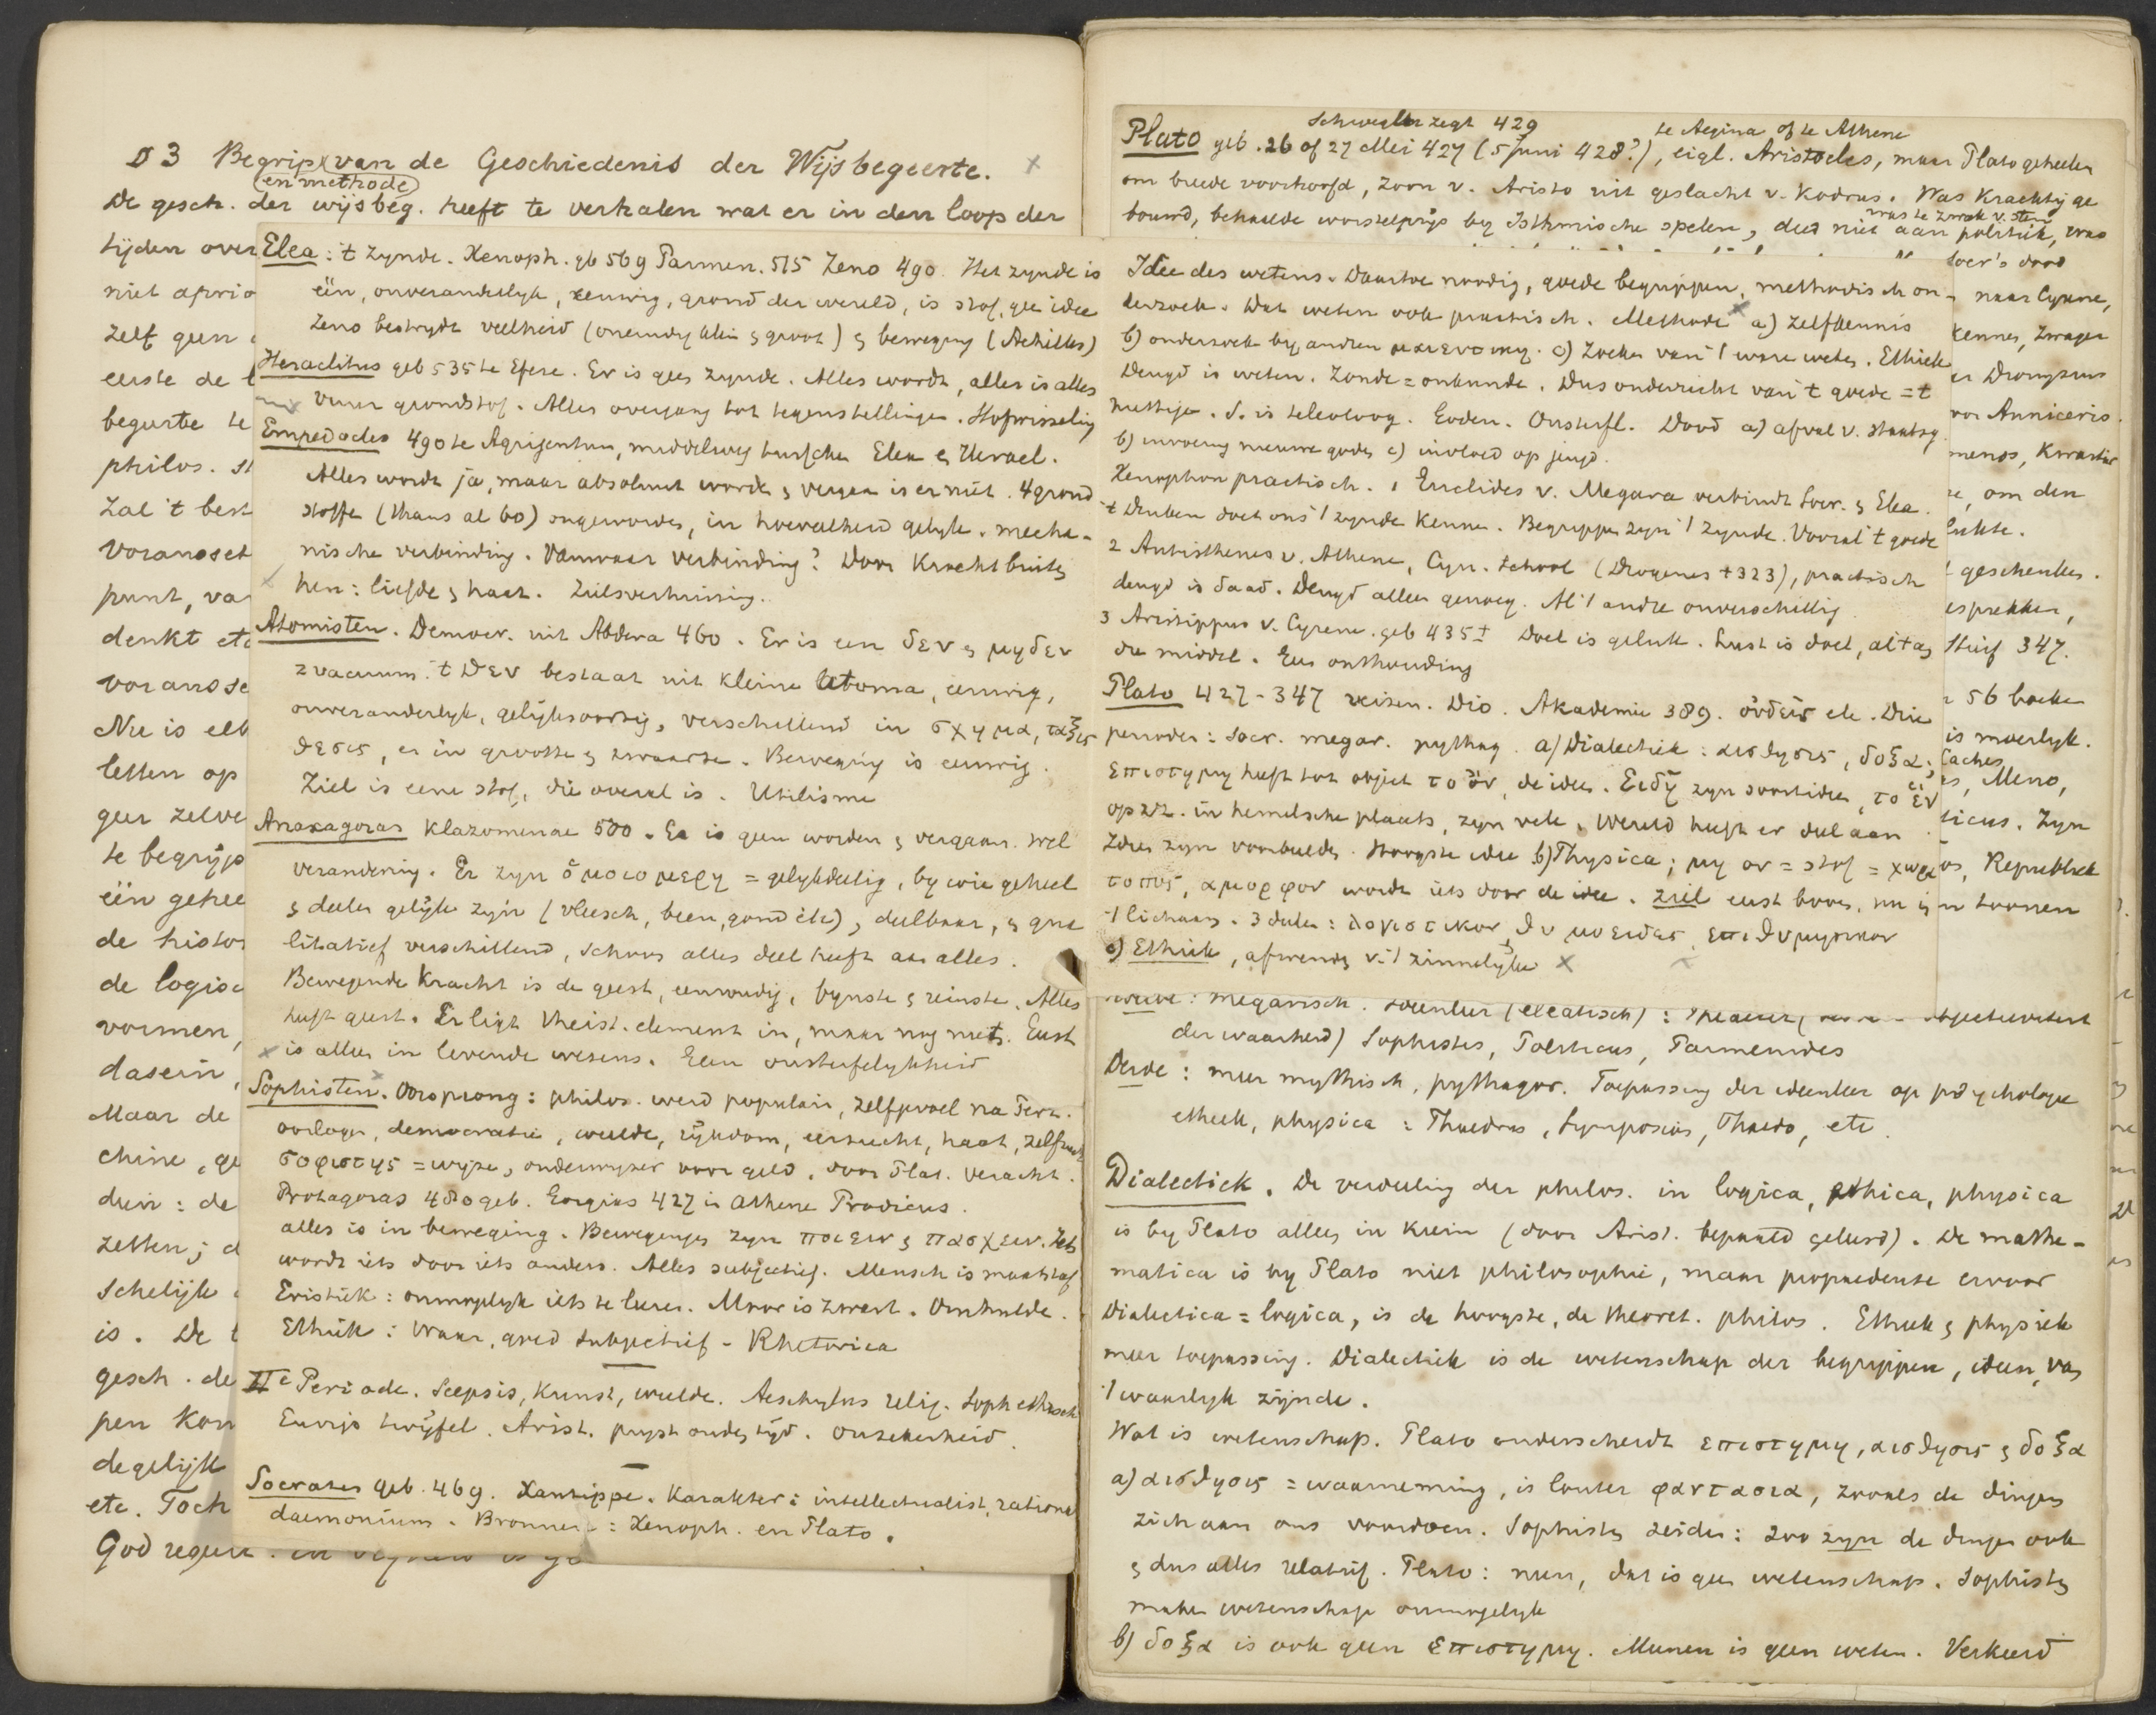 § 3 Begrip van de Geschiedenis der Wijsbegeerte. ×
(en methode)
De gesch. der wijsbeg. heeft te verhalen wat er in den loop der
tijden over
niet aprio
zelf geen
eerste de
begeerte te
philos. st
zal 't best
voorausset
punt, va
denkt etc
vorausse
Nu is elk
letten op
geer zelve
te begrijp
één gehee
de histor
de logisc
vormen,
dasein,
Maar de
chine, ge
dien: de
zetten; d
schelijk
is. De
gesch. de
pen kon
degelijk
etc. Toch
God regeer
Elea: 't zynde. Xenoph. gb 569 Parmen. 515 Zeno 490. Het zynde is
één, onveranderlyk, eeuwig, grond der wereld, is stof, gee idee
Zeno bestrydt veelheid (oneindig klein & groot) & beweging (Achilles)
Heraclitus geb 535 te Efese. Er is gee zynde. Alles wordt, alles is alles
vuur grondstof. Alles overgang tot tegenstellingen. Stofwisseling
Empedocles 490 te Agrigentum, middelweg tusschen Elea & Herael.
Alles wordt ja, maar absoluut worde & vergaan is er niet. 4 grond
stoffe (thans al 60) ongeworden, in hoeveelheid gelyk. mecha-
nische verbinding. Vanwaar verbinding? Door kracht buiten
hen: liefde & haat. Zielsverhuizing.
Atomisten. Democr. uit Abdera 460. Er is een δεν & μηδεν
= vacuum. 't Δεν bestaat uit kleine atoma, eeuwig,
onveranderlyk, gelijksoortig, verschillend in σχημα, ταξις
θεσις, en in grootte & zwaarte. Beweging is eeuwig.
Ziel is eene stof, die overal is. Utilisme
Anaxagoras Klazomenae 500. Er is geen worden & vergaan. wel
verandering. Er zyn ὁμοιομερη = gelykdeelig, by wie geheel
& deelen gelijk zijn (vleesch, been, goud etc), deelbaar, & qua
litatief verschillend, schoon alles deel heeft aan alles.
Bewegende kracht is de geest, eenvoudig, fynste & reinste. Alles
heeft geest. Er ligt theist. element in, maar nog niets. Eerst
is alles in levende wezens. Geen onsterfelykheid
Sophisten. Oorsprong: philos. werd populair, zelfgevoel na Perz.
oorlogen, democratie, weelde, rijkdom, eerzucht, haat, zelfzucht
σοφιστης = wijze, onderwyzer voor geld, door Plat. veracht.
Protagoras 480 geb. Gorgias 427 in Athene Prodicus.
alles is in beweging. Bewegingen zyn ποιειν & πασχειν. Iets
wordt iets door iets anders. Alles subjectief. Mensch is maatstaf
Eristiek: onmogelyk iets te leeren. Moor is zwart. Omhulde.
Ethiek: waar, goed subjectief - Rhetorica
IIe Periode. Scepsis, kunst, weelde. Aeschylus relig. Soph ethisch
Eurip twijfel. Arist. pryst ouden tijd. onzekerheid.
Socrates geb. 469. Xantippe. Karakter: intellectualist, rationa
daemonium. Bronnen: Xenoph. en Plato.
Schwegler zegt 429 te Aegina of te Athene
Plato geb. 26 of 27 Mei 427 (5 Juni 428?), eigl. Aristocles, maar Plato geheeten
om breede voorhoofd, zoon v. Aristo uit geslacht v. Kodrus. Was krachtig ge
bouwd, behaalde worstelprijs by Isthmische spelen, deed niet aan politiek, was
was te zwak v. stem
Socr's dood
naar Cyrene,
kennen, zwager
Dionysius
Anniceris.
om den
geschenken.
347.
56 boeken
is moeilyk.
Laches
Meno,
Zyn
Republiek
toonen
Idee des wetens. Daartoe noodig, goede begrippen, methodisch on-
derzoek. Dat weten ook practisch. Methode × a) zelfkennis
b) onderzoek by anderen μαιευτικη. c) Zoeken van 't ware weten. Ethiek
Deugd is weten. Zonde = onkunde. Dus onderricht van 't goede = 't
nuttige. S. is teleoloog. Goden. Onsterfl. Dood a) afval v. staatsg.
b) invoering nieuwe goden c) invloed op jeugd.
Xenophon practisch. 1 Euclides v. Megara verbindt Socr. & Elea.
't Denken doet ons 't zynde kennen. Begrippen zyn 't zynde. Vooral 't goede
2 Antisthenes v. Athene, Cyn. school (Diogenes †323), practisch
deugd is daad. Deugd alleen genoeg. Al 't andre onverschillig
3 Aristippus v. Cyrene. geb 435± Doel is geluk. Lust is doel,
die middel. Geen onthouding
Plato 427-347 reizen. Dio. Akademie 389. οὐδεις etc. Drie
perioden: Socr. megar. pythag. a) Dialectiek: αισθησις, δοξα;
επιστημη heeft tot object το ὀν, de idee. Ειδη zyn soortideen, το ἑν
op zz. in hemelsche plaats, zyn vele. Wereld heeft er deel aan
Ideen zyn voorbeelden. Hoogste idee b) Physica; μη ον = stof = χωρα
τοπος, αμορφον wordt iets door de idee. Ziel eerst boven, nu in
't lichaam. 3 deelen: λογιστικον, θυμοειδες, επιθυμητικον
c) Ethiek, afwenden v. 't zinnelijke ×
Tweede: megarisch. Ideenleer (eleatisch):
der waarheid) Sophistes, Politicus, Parmenides
Derde: meer mythisch, pythagor. Toepassing der ideenleer op psychologie
ethiek, physica: Phaedrus, Symposion, Phaedo, etc.
Dialectiek. De verdeeling der philos. in logica, ethica, physica
is by Plato alleen in kiem (door Arist. bepaald geleerd). De mathe-
matica is by Plato niet philosophie, maar propaedeuse ervoor
Dialectica = logica, is de hoogste, de theoret. philos. Ethiek & physiek
meer toepassing. Dialectiek is de wetenschap der begrippen, ideen, van
't waarlyk zijnde.
Wat is wetenschap. Plato onderscheidt επιστημη, αισθησις & δοξα
a) αισθησις = waarneming, is louter φαντασια, zooals de dingen
zich aan ons voordoen. Sophisten zeiden: zoo zyn de dingen ook
& dus alles relatief. Plato: neen, dat is geen wetenschap. Sophisten
maken wetenschap onmogelyk
b) δοξα is ook geen επιστημη. Meenen is geen weten. Verkeerd